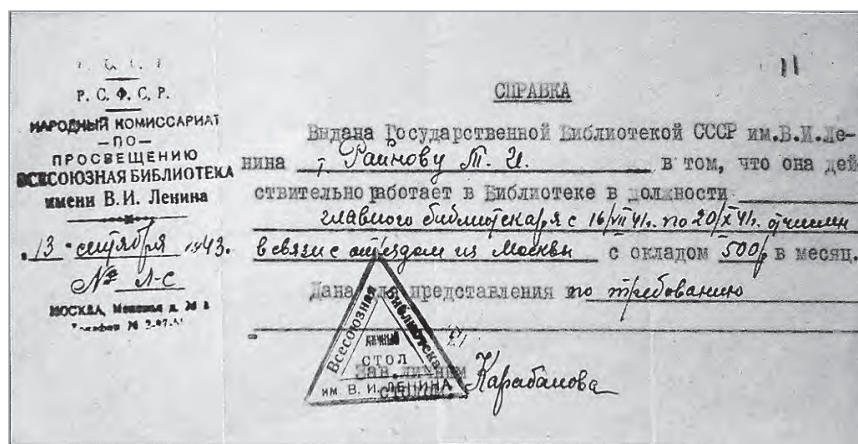 11
Р. С. Ф. С. Р.
НАРОДНЫЙ КОМИССАРИАТ
—ПО—
ПРОСВЕЩЕНИЮ
ВСЕСОЮЗНАЯ БИБЛИОТЕКА
имени В. И. Ленина
13 сентября 1943.
№ Л-С
МОСКВА, Моховая д. № 3
СПРАВКА
Выдана Государственной Библиотекой СССР им.В.И.Ле-
нина т. Раинову Т. И. в том, что она дей
ствительно работает в Библиотеке в должности
главного библиотекаря с 16/VII 41г. по 20/X 41г. отчислен
в связи с отъездом из Москвы с окладом 500р в месяц.
Дана для представления по требованию
Всесоюзная Библиотека
ЛИЧНЫЙ
СТОЛ
ИМ. В. И. ЛЕНИНА
Зав. личным
столом Карабанова